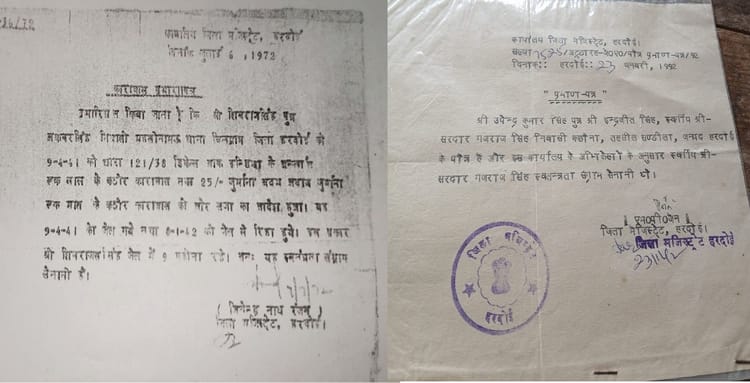 कार्यालय जिला मजिस्ट्रेट, हरदोई
दिनांक जुलाई 6, 1972
कारावास प्रमाणपत्र
प्रमाणित किया जाता है कि श्री शिवराजसिंह पुत्र
अकबरसिंह निवासी थाना जिला हरदोई को
9-4-41 को धारा 121/38 डिफेन्स आफ इण्डिया के अन्तर्गत
एक साल के कठोर कारावास तथा 25/- जुर्माना
एक माह के कठोर कारावास की और सजा का आदेश हुआ। यह
9-4-41 को जेल गये तथा 8-1-42 को जेल से रिहा हुये। इस प्रकार
श्री शिवराजसिंह जेल में 9 महीना रहे। अतः यह स्वतंत्रता संग्राम
सेनानी हैं।
नाथ
जिला मजिस्ट्रेट, हरदोई।
कार्यालय जिला मजिस्ट्रेट, हरदोई।
दिनांक:: हरदोई:: 23 जनवरी, 1992
"प्रमाण-पत्र"
श्री उपेन्द्र कुमार सिंह पुत्र श्री इन्द्रजीत सिंह, स्वर्गीय श्री-
सरदार गजराज सिंह निवासी तहसील सण्डीला, जनपद हरदोई
के पौत्र है और इस कार्यालय के अभिलेखों के अनुसार स्वर्गीय श्री-
सरदार गजराज सिंह स्वतन्त्रता संग्राम सेनानी थे।
जिला मजिस्ट्रेट, हरदोई।
जिला मजिस्ट्रेट हरदोई
जिला मजिस्ट्रेट
हरदोई